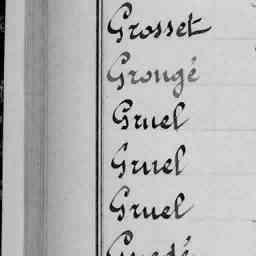 Grosset
Grougé
Gruel
Gruel
Gruel